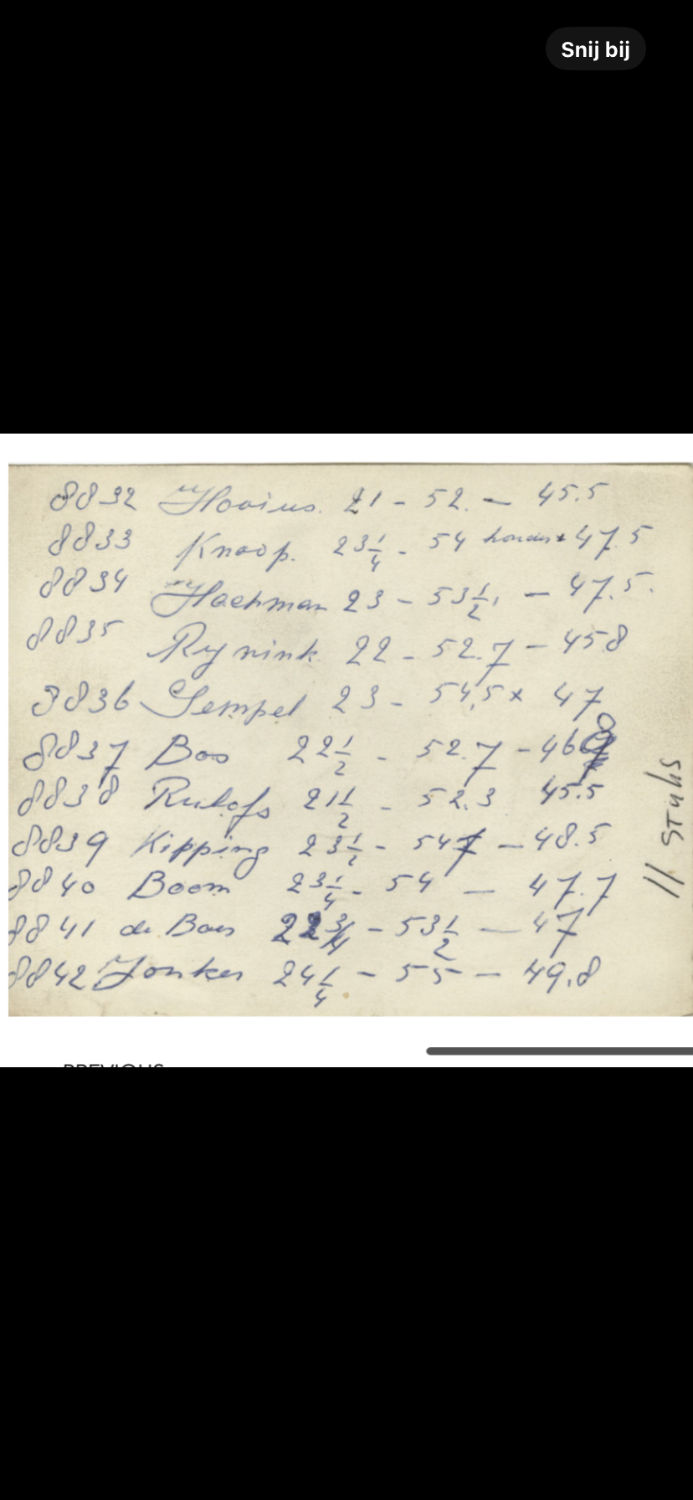 Snij bij
8832 Hovius. 21 - 52. - 45.5
8833 Knoop. 23 1/4 - 54 47.5
8834 Hachman 23 - 53 1/2, - 47.5.
8835 Rynink 22 - 52.7 - 45.8
8836 Sempel 23 - 54,5 x 47
8837 Bos 22 1/2 - 52.7 - 46
8838 Rulofs 21 1/2 - 52.3 45.5
8839 Kipping 23 1/2 - 54 - 48.5
8840 Boom 23 1/4 - 54 - 47.7
8841 de Boer 22 3/4 - 53 1/2 - 47
8842 Jonker 24 1/4 - 55 - 49.8
11 stuks
PREVIOUS